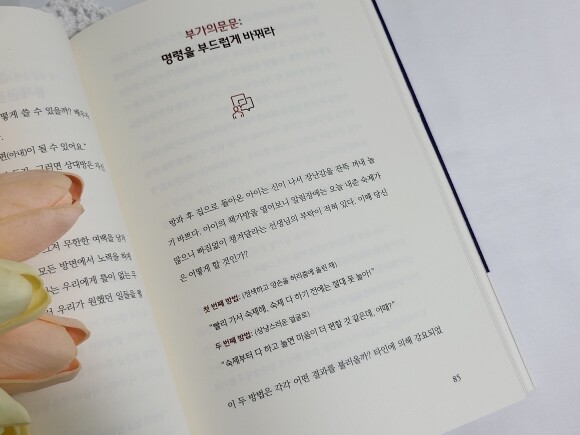 떻게 쓸 수 있을까?
면(아내)이 될 수 있어요."
그러면 상대방은
무한한 여백을 남겨
모든 방면에서 노력을 하게
는 우리에게 틈이 없는
서 우리가 원했던 일들을
부가의문문:
명령을 부드럽게 바꿔라
방과 후 집으로 돌아온 아이는 신이 나서 장난감을 잔뜩 꺼내 놀
기 바쁘다. 아이의 책가방을 열어보니 알림장에는 오늘 내준 숙제가
많으니 빠짐없이 챙겨달라는 선생님의 부탁이 적혀 있다. 이때 당신
은 어떻게 할 것인가?
첫 번째 방법: (정색하고 양손을 허리춤에 올린 채)
"빨리 가서 숙제해. 숙제 다 하기 전에는 절대 못 놀아!"
두 번째 방법: (상냥스러운 얼굴로)
"숙제부터 다 하고 놀면 마음이 더 편할 것 같은데, 어때?"
이 두 방법은 각각 어떤 결과를 불러올까? 타인에 의해 강요되었
85